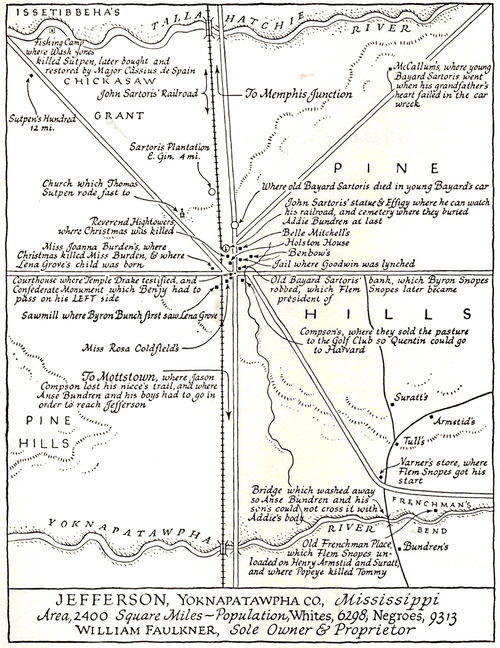 ISSETIBBEHA'S
TALLAHATCHIE RIVER
Fishing Camp
where Wash Jones
killed Sutpen, later bought and
restored by Major Cassius de Spain
CHICKASAW
GRANT
John Sartoris' Railroad
To Memphis Junction
McCallum's, where young
Bayard Sartoris went
when his grandfather's
heart failed in the car
wreck
Sutpen's Hundred
12 mi.
Sartoris Plantation
E. Gin. 4 mi.
PINE
Church which Thomas
Sutpen rode fast to
Where old Bayard Sartoris died in young Bayard's car
John Sartoris' statue & Effigy where he can watch
his railroad, and cemetery where they buried
Addie Bundren at last
Reverend Hightower's,
where Christmas was killed
Belle Mitchell's
Holston House
Benbow's
Jail where Goodwin was lynched
Miss Joanna Burden's, where
Christmas killed Miss Burden, & where
Lena Grove's child was born
Courthouse where Temple Drake testified, and
Confederate Monument which Benjy had to
pass on his LEFT side
Old Bayard Sartoris' bank, which Byron Snopes
robbed, which Flem Snopes later became
president of
HILLS
Sawmill where Byron Bunch first saw Lena Grove
Compson's, where they sold the pasture
to the Golf Club so Quentin could go
to Harvard
Miss Rosa Coldfield's
To Mottstown, where Jason
Compson lost his niece's trail, and where
Anse Bundren and his boys had to go in
order to reach Jefferson
PINE
HILLS
Suratt's
Armstid's
Tull's
Varner's store, where
Flem Snopes got his
start
FRENCHMAN'S
BEND
Bridge which washed away
so Anse Bundren and his
sons could not cross it with
Addie's body
YOKNAPATAWPHA RIVER
Old Frenchman Place,
which Flem Snopes un-
loaded on Henry Armstid and Suratt,
and where Popeye killed Tommy
Bundren's
JEFFERSON, YOKNAPATAWPHA CO., Mississippi
Area, 2400 Square Miles – Population, Whites, 6298; Negroes, 9313
WILLIAM FAULKNER, Sole Owner & Proprietor